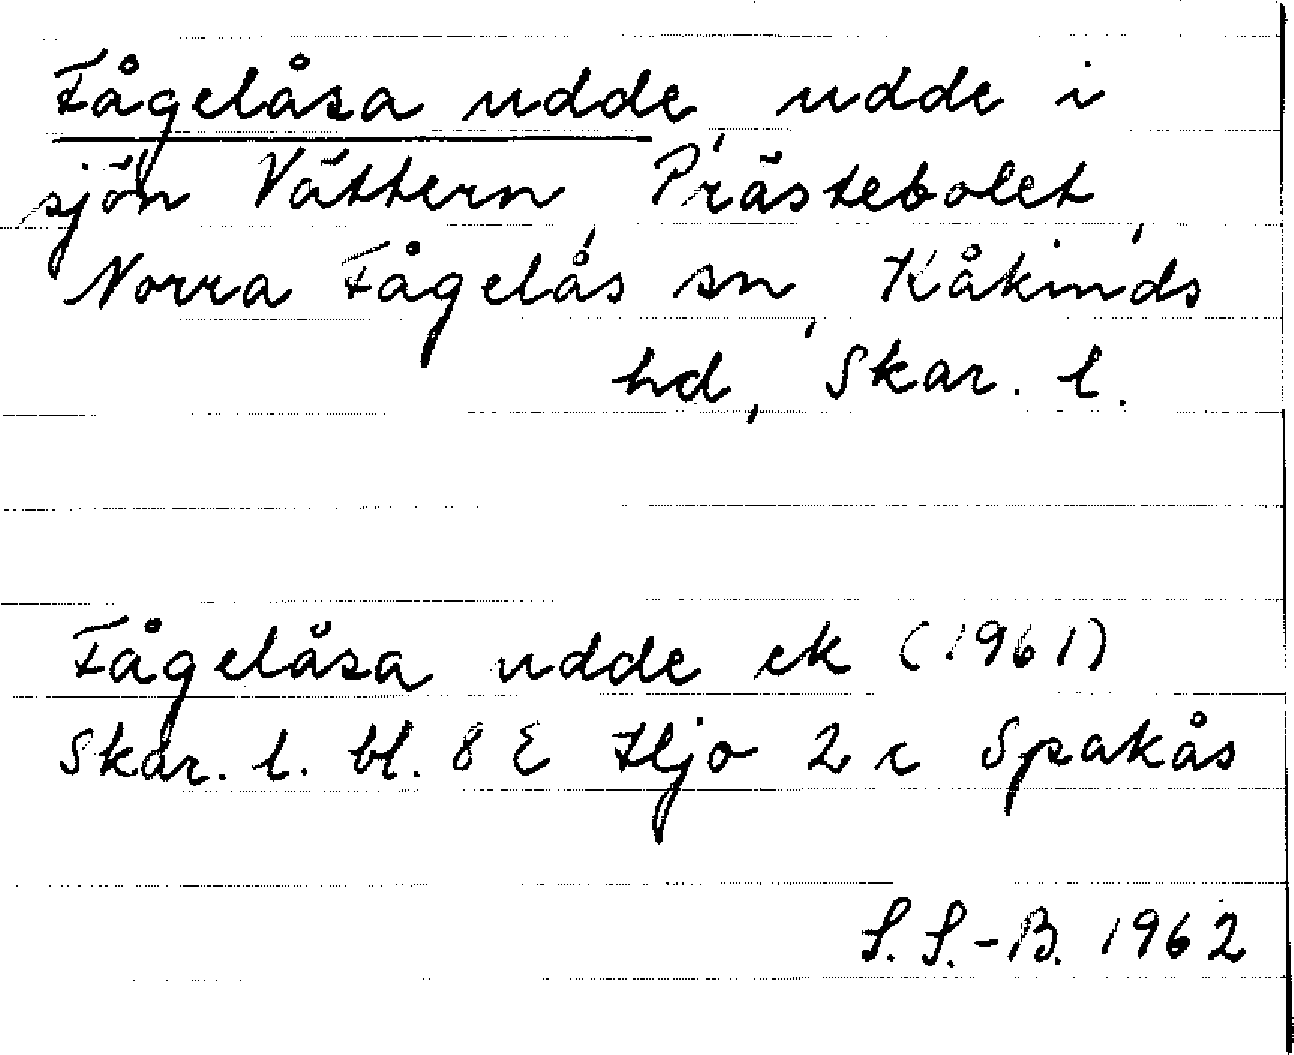 Fågelåsa udde, udde i
sjön Vättern, Prästebolet,
Norra Fågelås sn, Kåkinds
hd, Skar. l.
Fågelåsa udde ek (1961)
Skar. l. bl. 8 E Hjo 2 c Spakås
S. S.-B. 1962